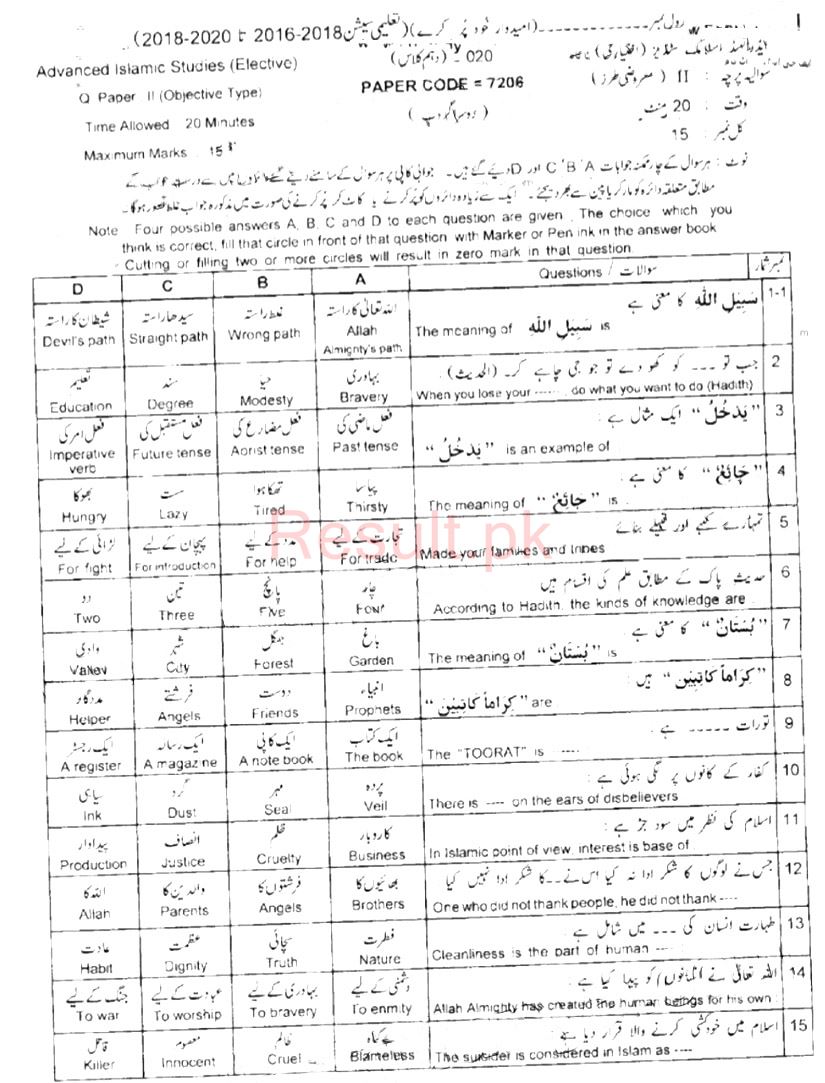 رول نمبر ــــــــــ (امیدوار خود پُر کرے) (تعلیمی سیشن 2018-2016 تا 2020-2018)
ایڈوانسڈ اسلامک سٹڈیز (اختیاری)
020 - (دہم کلاس)
Advanced Islamic Studies (Elective)
سوالیہ پرچہ : II (معروضی طرز)
PAPER CODE = 7206
Q Paper II (Objective Type)
وقت : 20 منٹ
(دوسرا گروپ)
Time Allowed 20 Minutes
کل نمبر : 15
Maximum Marks 15
نوٹ : ہر سوال کے چار ممکنہ جوابات A 'B 'C اور D دیے گئے ہیں۔ جوابی کاپی پر ہر سوال کے سامنے دیئے گئے دائروں میں سے درست جواب کے
مطابق متعلقہ دائرہ کو مارکر یا پین سے بھر دیجئے۔ ایک سے زیادہ دائروں کو پُر کرنے یا کاٹ کر پُر کرنے کی صورت میں مذکورہ جواب غلط تصور ہوگا۔
Note Four possible answers A, B, C and D to each question are given . The choice which you
think is correct, fill that circle in front of that question with Marker or Pen ink in the answer book
Cutting or filling two or more circles will result in zero mark in that question.
D C B A سوالات / Questions نمبر شمار
شیطان کا راستہ سیدھا راستہ غلط راستہ اللہ تعالیٰ کا راستہ سَبِيْلِ اللّٰه کا معنی ہے 1-1
Devil's path Straight path Wrong path Allah Almighty's path The meaning of سَبِيْلِ اللّٰه is
تعلیم سند حیا بہادری جب تو ---- کو کھو دے تو جو جی چاہے کر۔ (الحدیث) 2
Education Degree Modesty Bravery When you lose your ------ , do what you want to do (Hadith)
فعل امر کی فعل مستقبل کی فعل مضارع کی فعل ماضی کی "يَدْخُلُ" ایک مثال ہے : 3
Imperative verb Future tense Aorist tense Past tense "يَدْخُلُ" is an example of
بھوکا ست تھکا ہوا پیاسا "جَائِعٌ" کا معنی ہے : 4
Hungry Lazy Tired Thirsty The meaning of "جَائِعٌ" is .
لڑائی کے لیے پہچان کے لیے مدد کے لیے تجارت کے لیے تمہارے کنبے اور قبیلے بنائے 5
For fight For introduction For help For trade Made your families and tribes
دو تین پانچ چار حدیث پاک کے مطابق علم کی اقسام ہیں 6
Two Three Five Four According to Hadith, the kinds of knowledge are
وادی شہر جنگل باغ "بُسْتَانٌ" کا معنی ہے : 7
Valley City Forest Garden The meaning of "بُسْتَانٌ" is
مددگار فرشتے دوست انبیاء "كِرَاماً كَاتِبِيْن" ہیں : 8
Helper Angels Friends Prophets "كِرَاماً كَاتِبِيْن" are
ایک رجسٹر ایک رسالہ ایک کاپی ایک کتاب تورات ----- ہے : 9
A register A magazine A note book The book The "TOORAT" is -----
سیاہی گرد مہر پردہ کفار کے کانوں پر لگی ہوئی ہے : 10
Ink Dust Seal Veil There is ---- on the ears of disbelievers
پیداوار انصاف ظلم کاروبار اسلام کی نظر میں سود جڑ ہے : 11
Production Justice Cruelty Business In Islamic point of view, interest is base of
اللہ کا والدین کا فرشتوں کا بھائیوں کا جس نے لوگوں کا شکر ادا نہ کیا اس نے --کا شکر ادا نہیں کیا 12
Allah Parents Angels Brothers One who did not thank people, he did not thank ----
عادت عظمت سچائی فطرت طہارت انسان کی --- میں شامل ہے : 13
Habit Dignity Truth Nature Cleanliness is the part of human ----
جنگ کے لیے عبادت کے لیے بہادری کے لیے دشمنی کے لیے اللہ تعالیٰ نے انسانوں کو پیدا کیا ہے : 14
To war To worship To bravery To enmity Allah Almighty has created the human beings for his own :
قاتل معصوم ظالم بے گناہ اسلام میں خودکشی کرنے والا قرار دیا ہے : 15
Killer Innocent Cruel Blameless The suisider is considered in Islam as ----
Result.pk